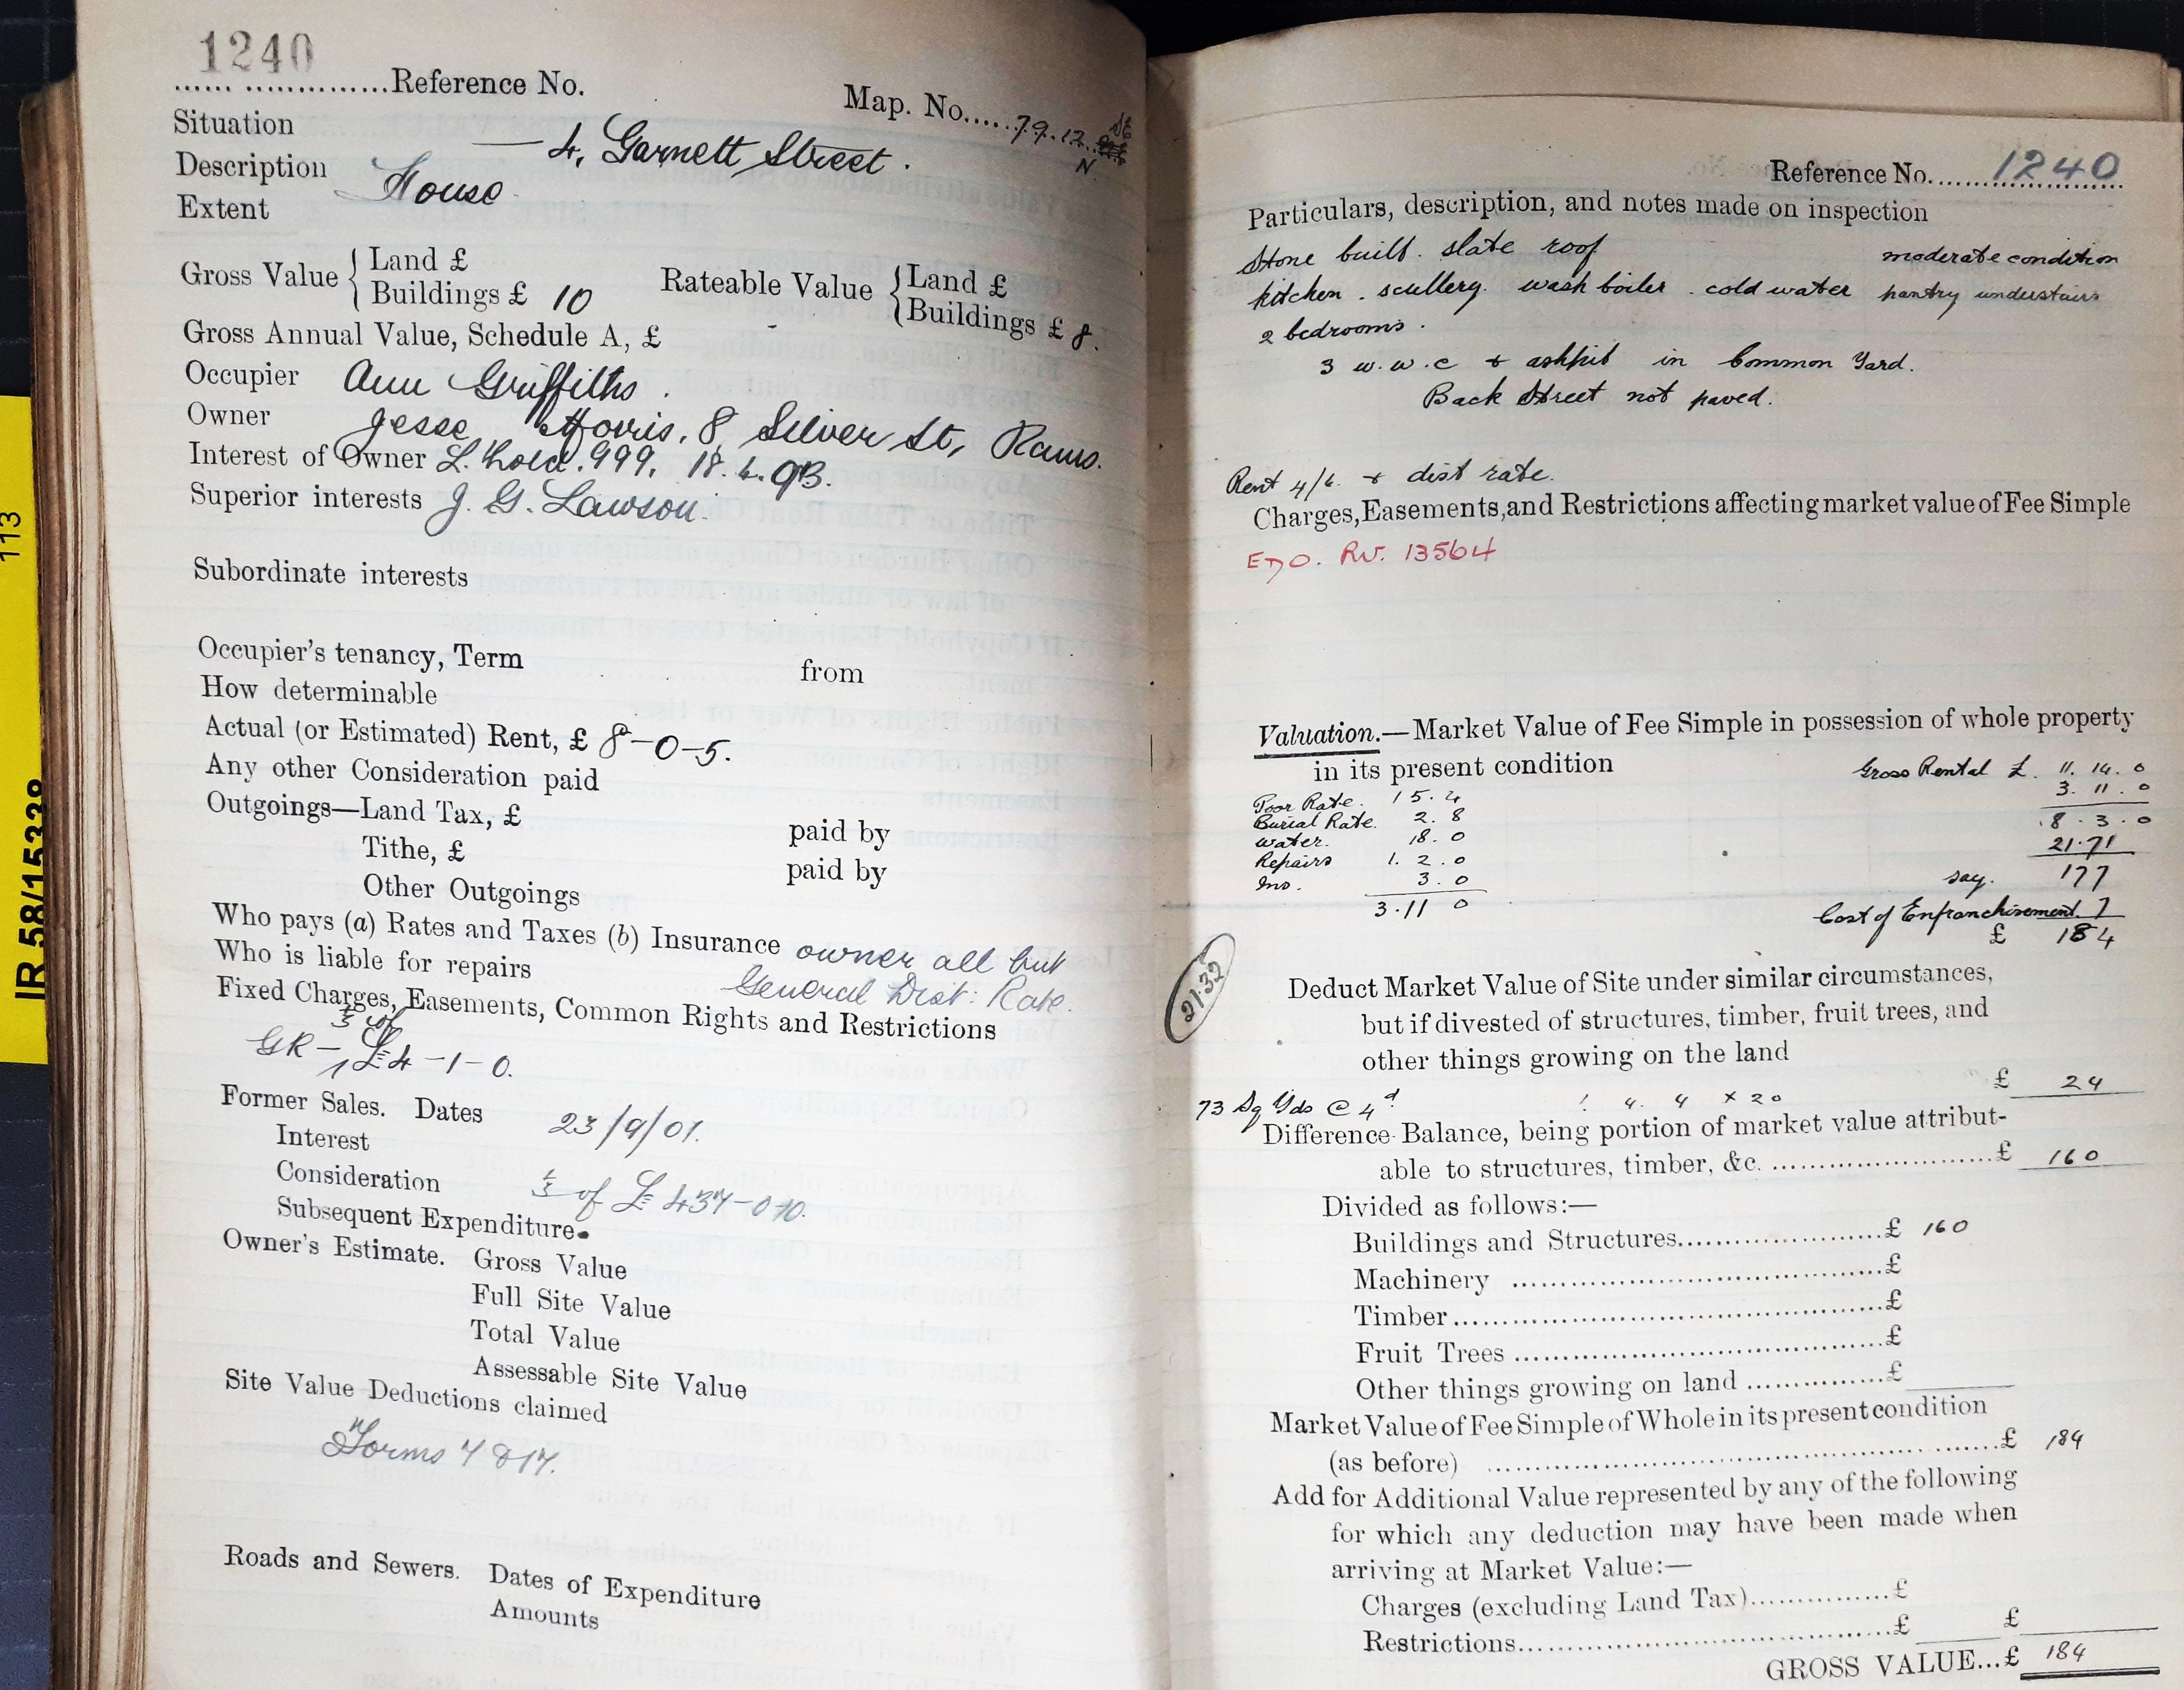 113
IR 58/15338
1240
Reference No.
Map. No. 79.12
N
Situation — 4, Garnett Street.
Description House
Extent
Gross Value { Land £
Buildings £ 10
Rateable Value { Land £
Buildings £ 8.
Gross Annual Value, Schedule A, £
Occupier Ann Griffiths.
Owner Jesse Morris, 8, Silver St, Rams.
Interest of Owner L. hold. 999. 18.4.93.
Superior interests J. G. Lawson.
Subordinate interests
Occupier's tenancy, Term from
How determinable
Actual (or Estimated) Rent, £ 8-0-5.
Any other Consideration paid
Outgoings—Land Tax, £ paid by
Tithe, £ paid by
Other Outgoings
Who pays (a) Rates and Taxes (b) Insurance owner all but
Who is liable for repairs General Dist: Rate.
Fixed Charges, Easements, Common Rights and Restrictions
GR — of £4-1-0.
Former Sales. Dates 23/9/01.
Interest
Consideration of £437-0-10.
Subsequent Expenditure
Owner's Estimate. Gross Value
Full Site Value
Total Value
Assessable Site Value
Site Value Deductions claimed
Forms 4 & 14.
Roads and Sewers. Dates of Expenditure
Amounts
Reference No. 1240
Particulars, description, and notes made on inspection
Stone built. slate roof moderate condition
kitchen. scullery. wash boiler. cold water pantry understairs
2 bedrooms.
3 w.w.c + ashpit in Common Yard.
Back Street not paved.
Rent 4/6. + dist rate.
Charges, Easements, and Restrictions affecting market value of Fee Simple
RV. 13564
Valuation.—Market Value of Fee Simple in possession of whole property
in its present condition
Gross Rental £ 11. 14. 0
3. 11. 0
8. 3. 0
21.71
say. 177
Cost of Enfranchisement. 7
£ 184
Poor Rate. 15. 4
Burial Rate. 2. 8
Water. 18. 0
Repairs 1. 2. 0
Ins. 3. 0
3. 11 0
21.32
Deduct Market Value of Site under similar circumstances,
but if divested of structures, timber, fruit trees, and
other things growing on the land
£ 24
73 Sq Yds @ 4d 1. 4. 4 x 20
Difference Balance, being portion of market value attribut-
able to structures, timber, &c. £ 160
Divided as follows:—
Buildings and Structures £ 160
Machinery £
Timber £
Fruit Trees £
Other things growing on land £
Market Value of Fee Simple of Whole in its present condition
(as before) £ 184
Add for Additional Value represented by any of the following
for which any deduction may have been made when
arriving at Market Value:—
Charges (excluding Land Tax) £
Restrictions £ £
GROSS VALUE...£ 184